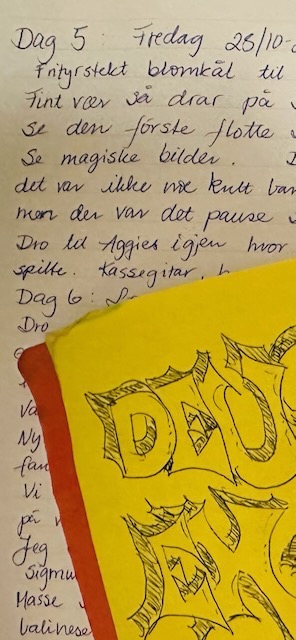 Dag 5: Fredag 28/10-
Frityrstekt blomkål til
Fint vær så drar på
Se den første flotte
Se magiske bilder.
det var ikke noe kult ban
men der var det pause
Dro til Aggies igjen hvor
spilte. Kassegitar.
Dag 6:
Dro
Va
Ny
fan
Vi
på
Jeg
Sigmu
Masse
balinese
DEUS